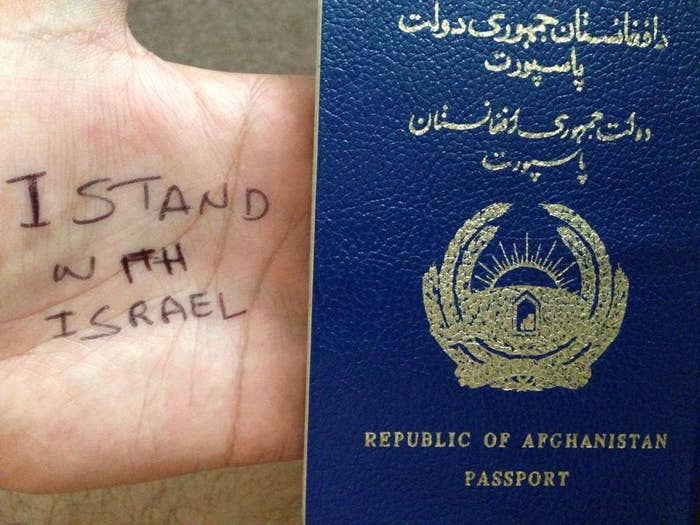 I STAND
WITH
ISRAEL
دافغانستان جمهوری دولت
پاسپورت
دولت جمهوری افغانستان
پاسپورت
REPUBLIC OF AFGHANISTAN
PASSPORT